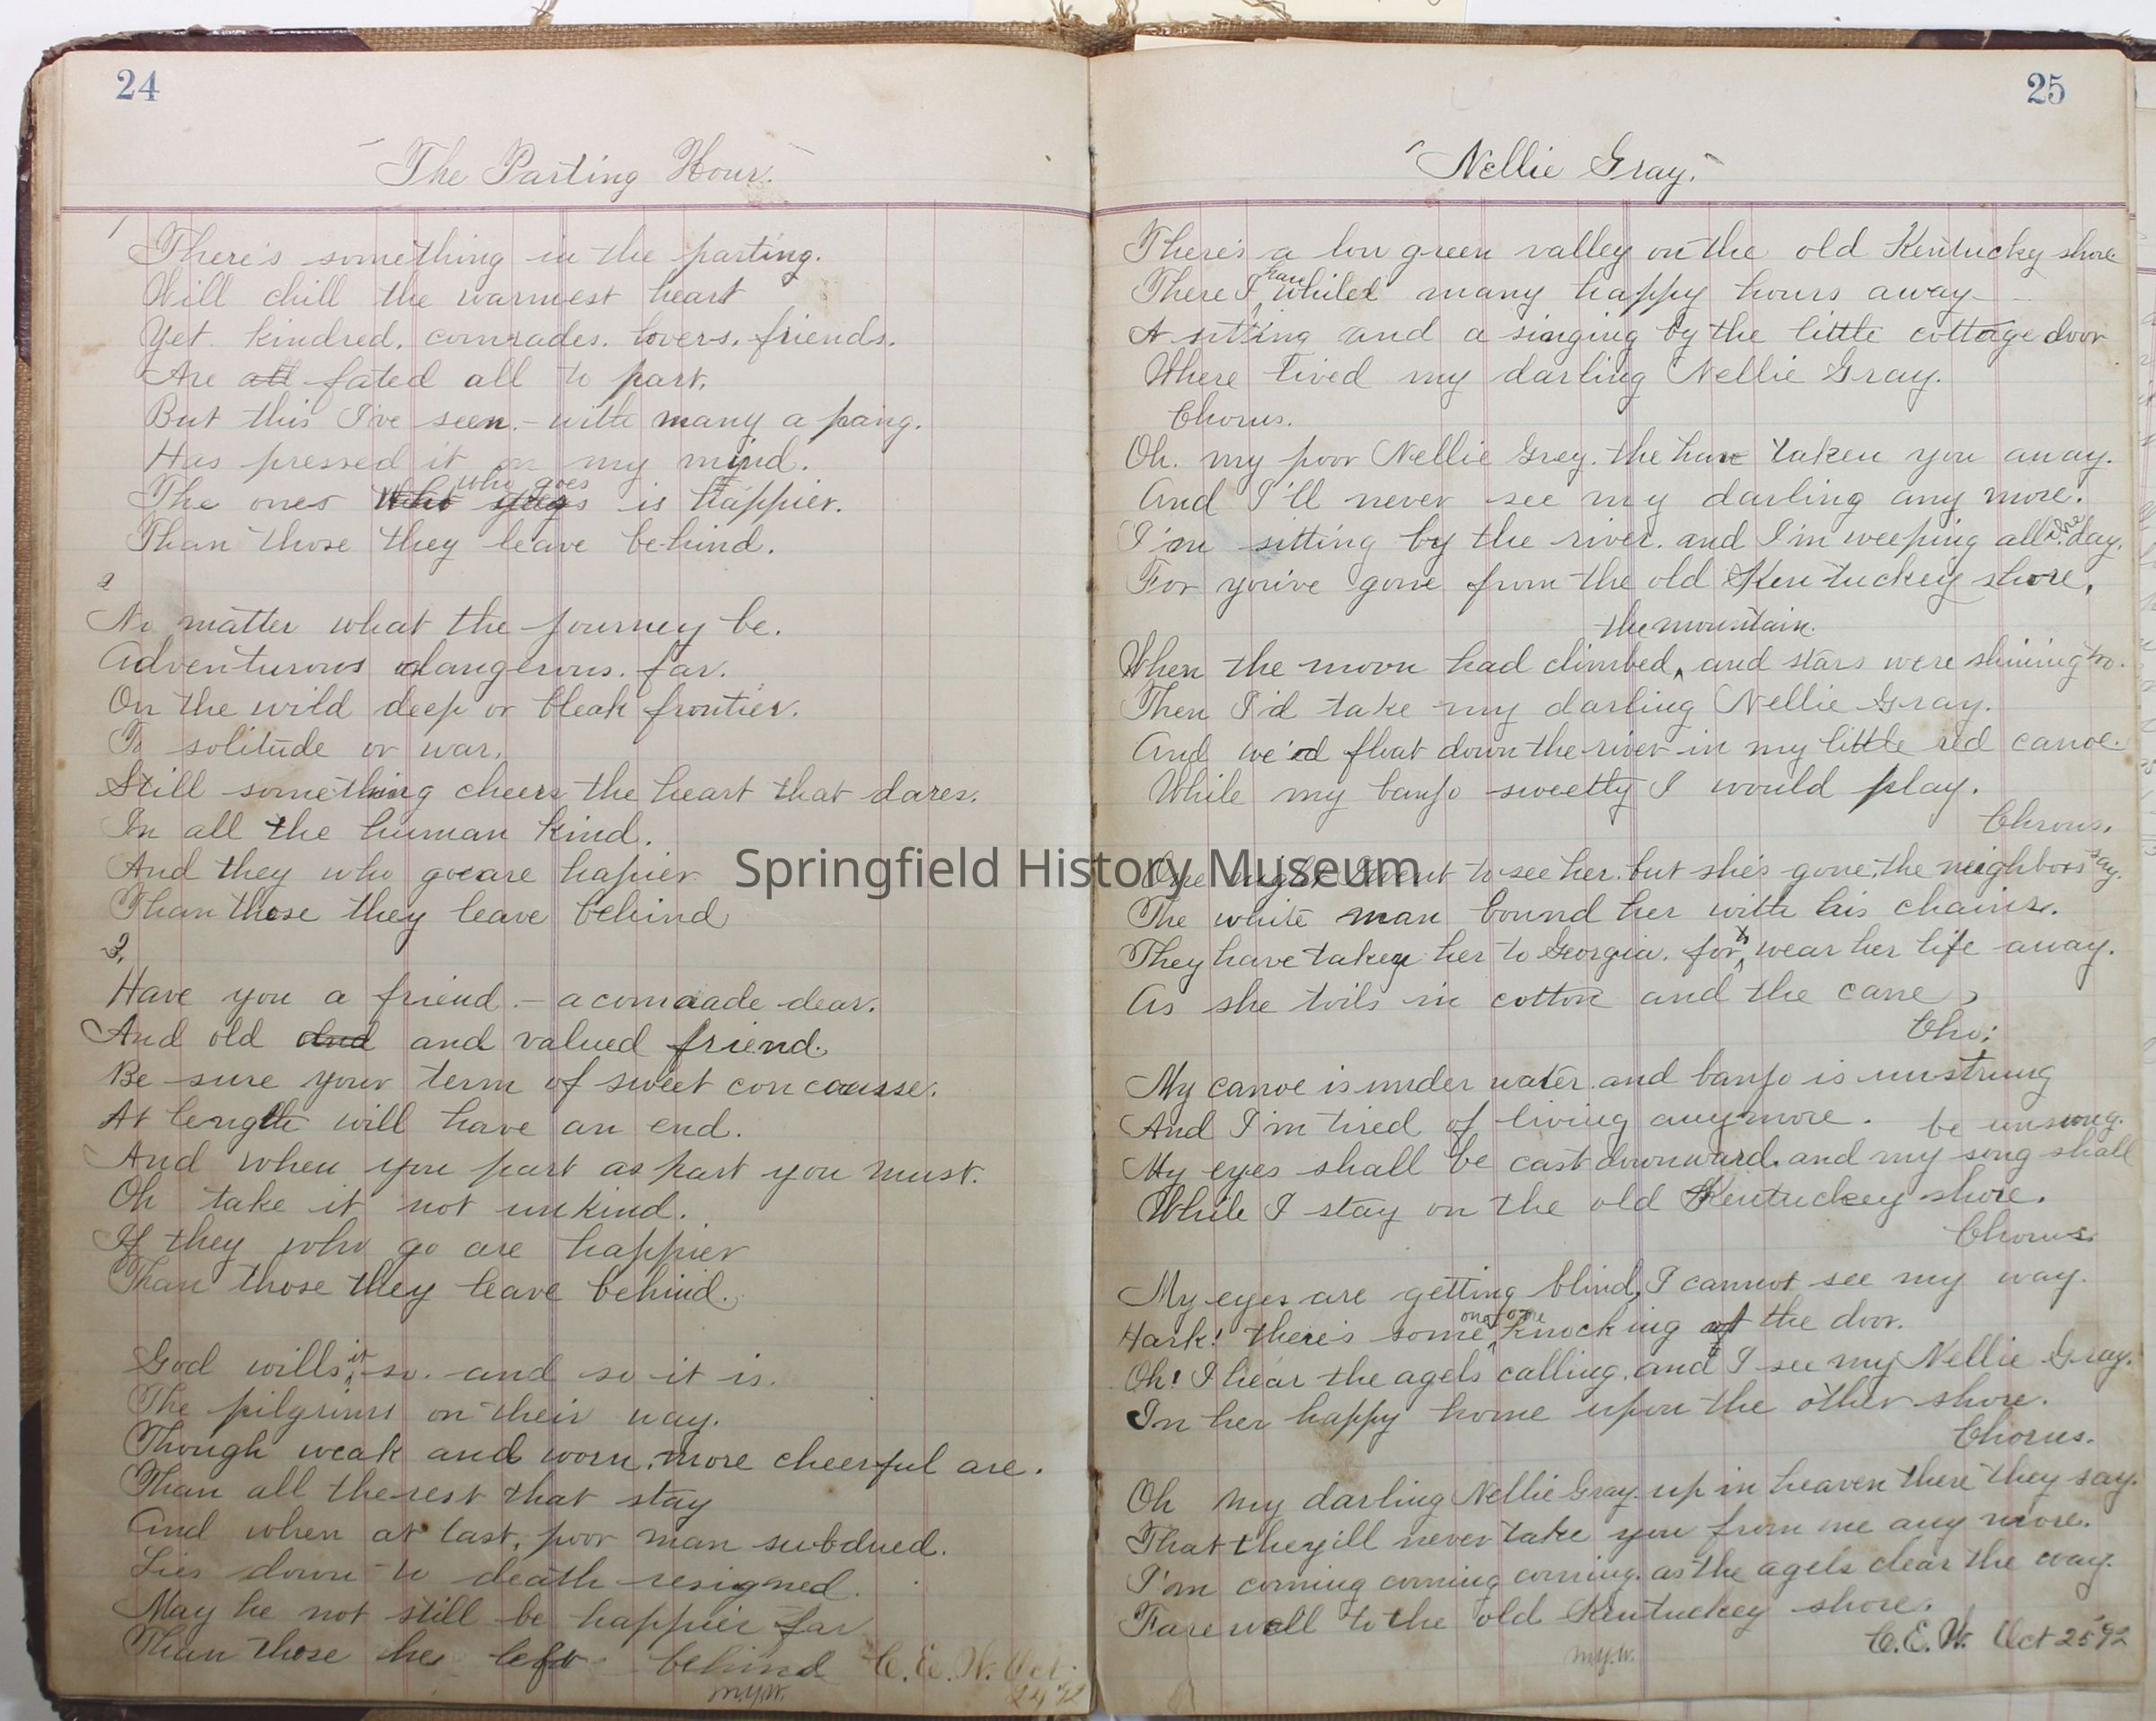 24
"The Parting Hour."
1
There's something in the parting.
Will chill the warmest heart
Yet kindred, comrades. lovers. friends.
Are all fated all to part.
But this I've seen. - with many a pang.
Has pressed it on my mind.
who goes
The ones Who is Happier.
Than those they leave behind.
2
No matter what the journey be.
Adventurous dangerous. far.
On the wild deep or bleak frontier.
To solitude or war.
Still something cheers the heart that dares.
In all the human kind.
And they who go are hapier
Than those they leave behind
3.
Have you a friend. - a comrade dear.
And old and and valued friend.
Be sure your term of sweet concourse.
At length will have an end.
And when you part as part you must.
Oh take it not unkind.
If they who go are happier
Than those they leave behind.
God wills it so. and so it is.
The pilgrims on their way.
Though weak and worn. more cheerful are.
Than all the rest that stay
And when at last, poor man subdued.
Lies down to death resigned.
May he not still be happier far
Than those he left behind C. E. W. Oct.
24 92
m.y.w.
25
"Nellie Gray."
There's a low green valley on the old Kentuckey shore
have
There I whiled many happy hours away
A sitting and a singing by the little cottage door
Where lived my darling Nellie Gray.
Chorus.
Oh. my poor Nellie Grey. the have taken you away.
And I'll never see my darling any more.
I'm sitting by the river. and I'm weeping all the day.
For you've gone from the old Kentuckey shore.
the mountain.
When the moon had climbed, and stars were shining to.
Then I'd take my darling Nellie Gray.
And we'd float down the river in my little red canoe.
While my banjo sweetly I would play.
Chrous.
One night I went to see her. but she's gone, the neighbors say.
The white man bound her with his chains.
They have taken her to Georgia. for to wear her life away.
As she toils in cotton and the cane,
Cho:
My canoe is under water. and banjo is unstrung
And I'm tired of living anymore.
be unsung.
My eyes shall be cast downward. and my song shall
While I stay on the old Kentuckey shore.
Chorus.
My eyes are getting blind, I cannot see my way.
one
Hark! there's some knocking at the door.
Oh! I hear the agels calling. and I see my Nellie Gray.
In her happy home upon the other shore.
Chorus.
Oh my darling Nellie Gray. up in heaven there they say.
That they'ill never take you from me any more.
I'm coming coming coming. as the agels clear the way.
Farewell to the old Kentuckey shore.
C. E. W. Oct 25 '92
m.y.w.
Springfield History Museum